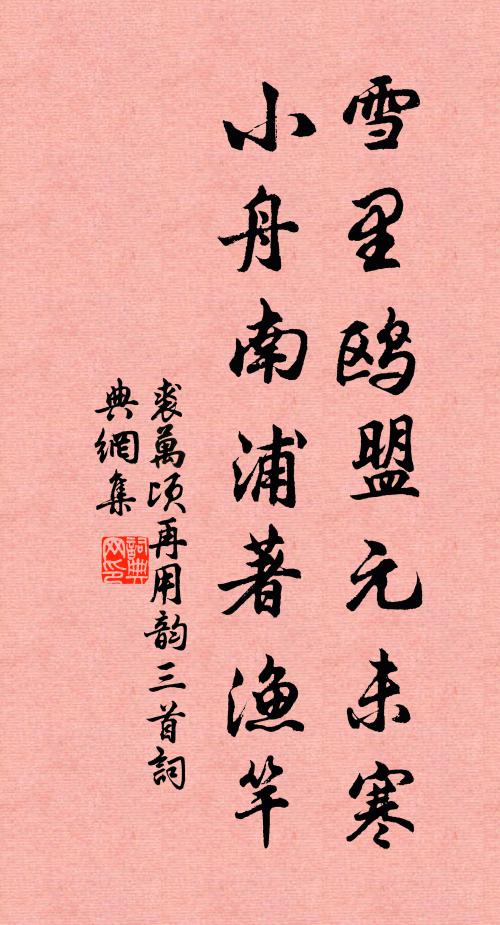 雪里鸥盟元未寒
小舟南浦著渔竿
裘萬頃再用韵三首詞
典網集
詞典
网印